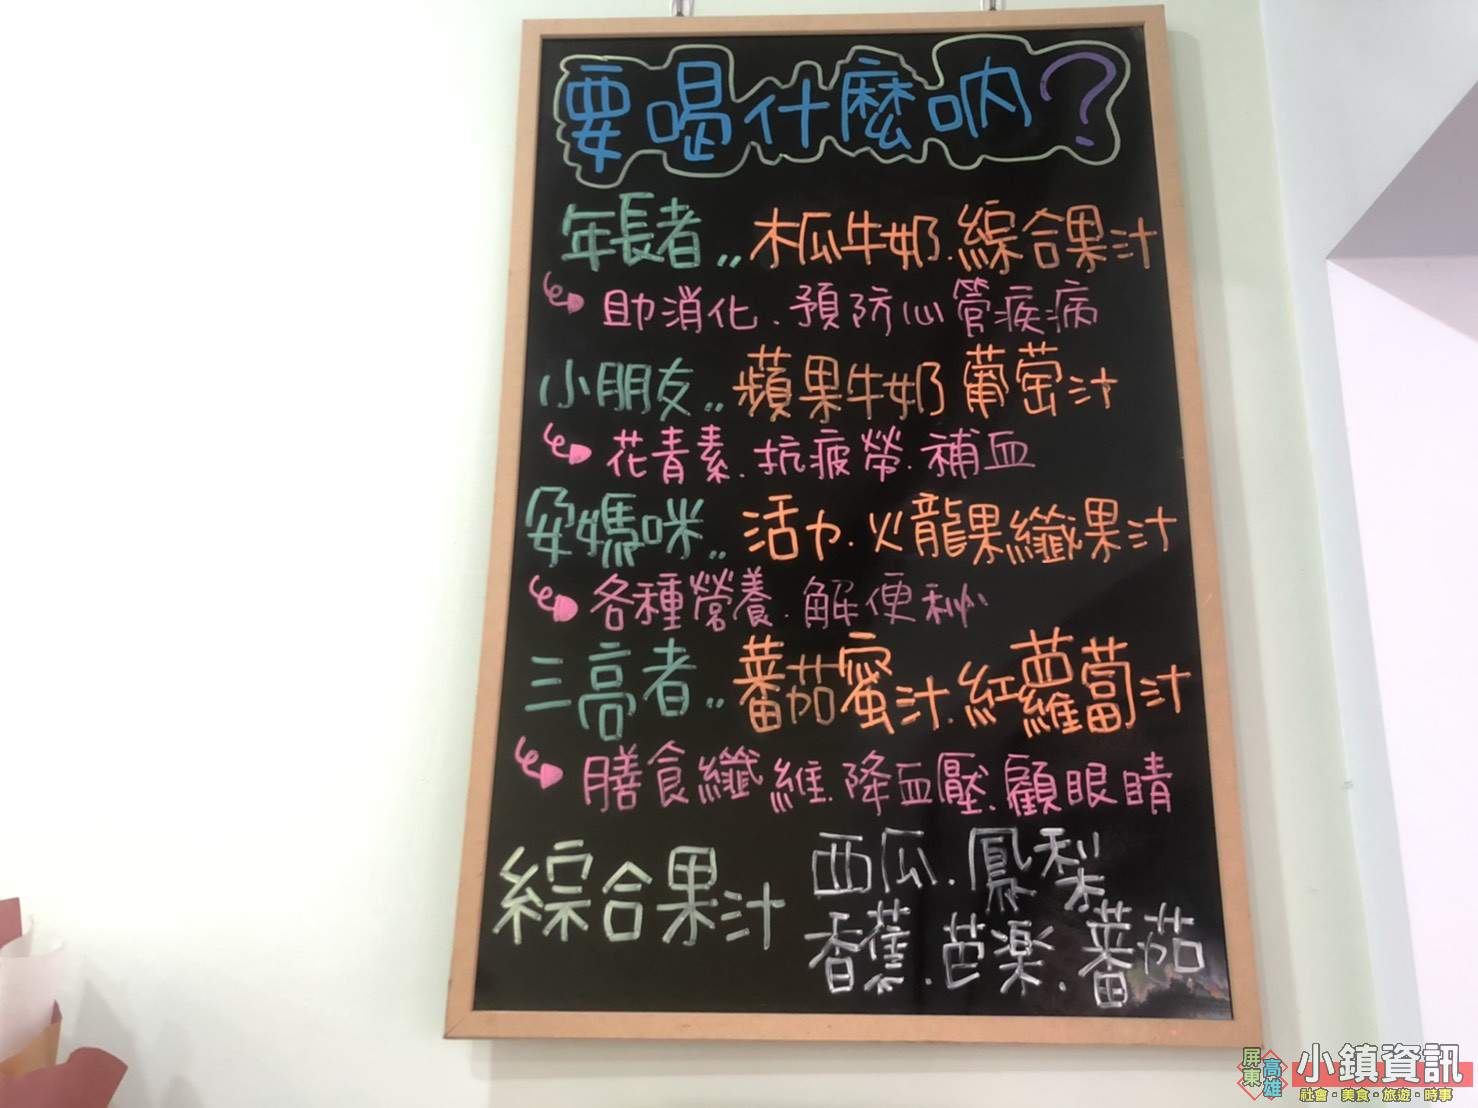 要喝什麼吶？
年長者..木瓜牛奶.綜合果汁
助消化.預防心管疾病
小朋友..蘋果牛奶 葡萄汁
花青素.抗疲勞.補血
孕媽咪..活力.火龍果纖果汁
各種營養.解便秘
三高者..蕃茄蜜汁.紅蘿蔔汁
膳食纖維.降血壓.顧眼睛
綜合果汁 西瓜.鳳梨
香蕉.芭樂.蕃茄
屏東 高雄 小鎮資訊
社會・美食・旅遊・時事